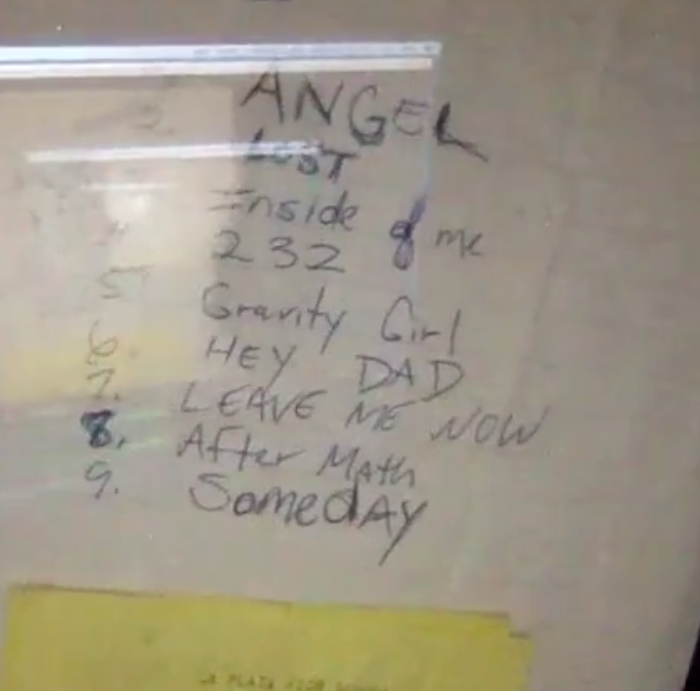 ANGEL
LOST
Inside of me
232
5 Gravity Girl
6. HEY DAD
7. LEAVE ME NOW
8. After Math
9. Someday
LA PLATA HIGH SCHOOL